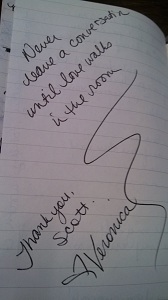 Never
leave a conversation
until love walks
in the room
Thank you,
Scott.
Veronica